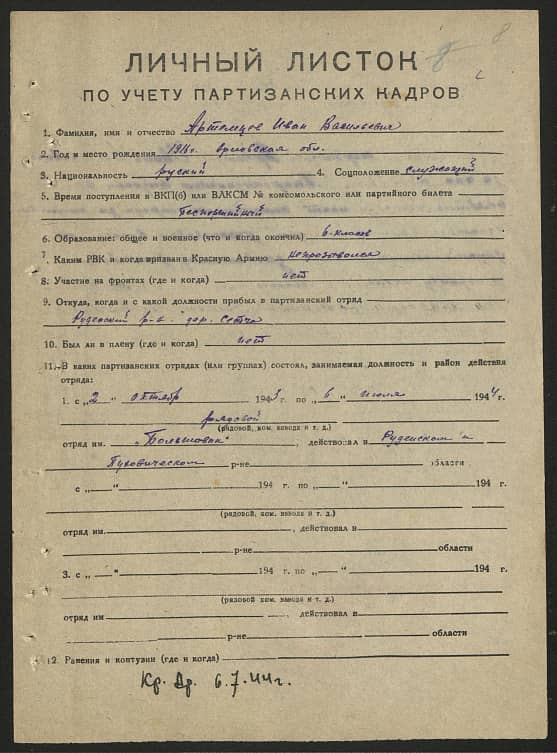 8
ЛИЧНЫЙ ЛИСТОК 8
ПО УЧЕТУ ПАРТИЗАНСКИХ КАДРОВ
1. Фамилия, имя и отчество Артемцов Иван Васильевич
2. Год и место рождения 1916 г. Орловская обл.
3. Национальность руский 4. Соцположение служащий
5. Время поступления в ВКП(б) или ВЛКСМ № комсомольского или партийного билета
беспортийный
6. Образование: общее и военное (что и когда окончил) 6-классов
7. Каким РВК и когда призван в Красную Армию непрозывался
8. Участие на фронтах (где и когда) нет
9. Откуда, когда и с какой должности прибыл в партизанский отряд
Руденский р-н дер. Сетча
10. Был ли в плену (где и когда) нет
11. В каких партизанских отрядах (или группах) состоял, занимаемая должность и район действия
отряда:
1. с „2" октябр 1943 г. по „6" июля 1944 г.
рядовой
(рядовой, ком. взвода и т. д.)
отряд им. „Большовик" , действовал в Руденском и
Пуховическом р-не области
с „ " 194 г. по „ " 194 г.
(рядовой, ком. взвода и т. д.)
отряд им. , действовал в
р-не области
3. с „ " 194 г. по „ " 194 г.
(рядовой ком. взвода и т. д.)
отряд им. , действовал в
р-не области
12. Ранения и контузии (где и когда)
Кр. Ар. 6.7.44г.